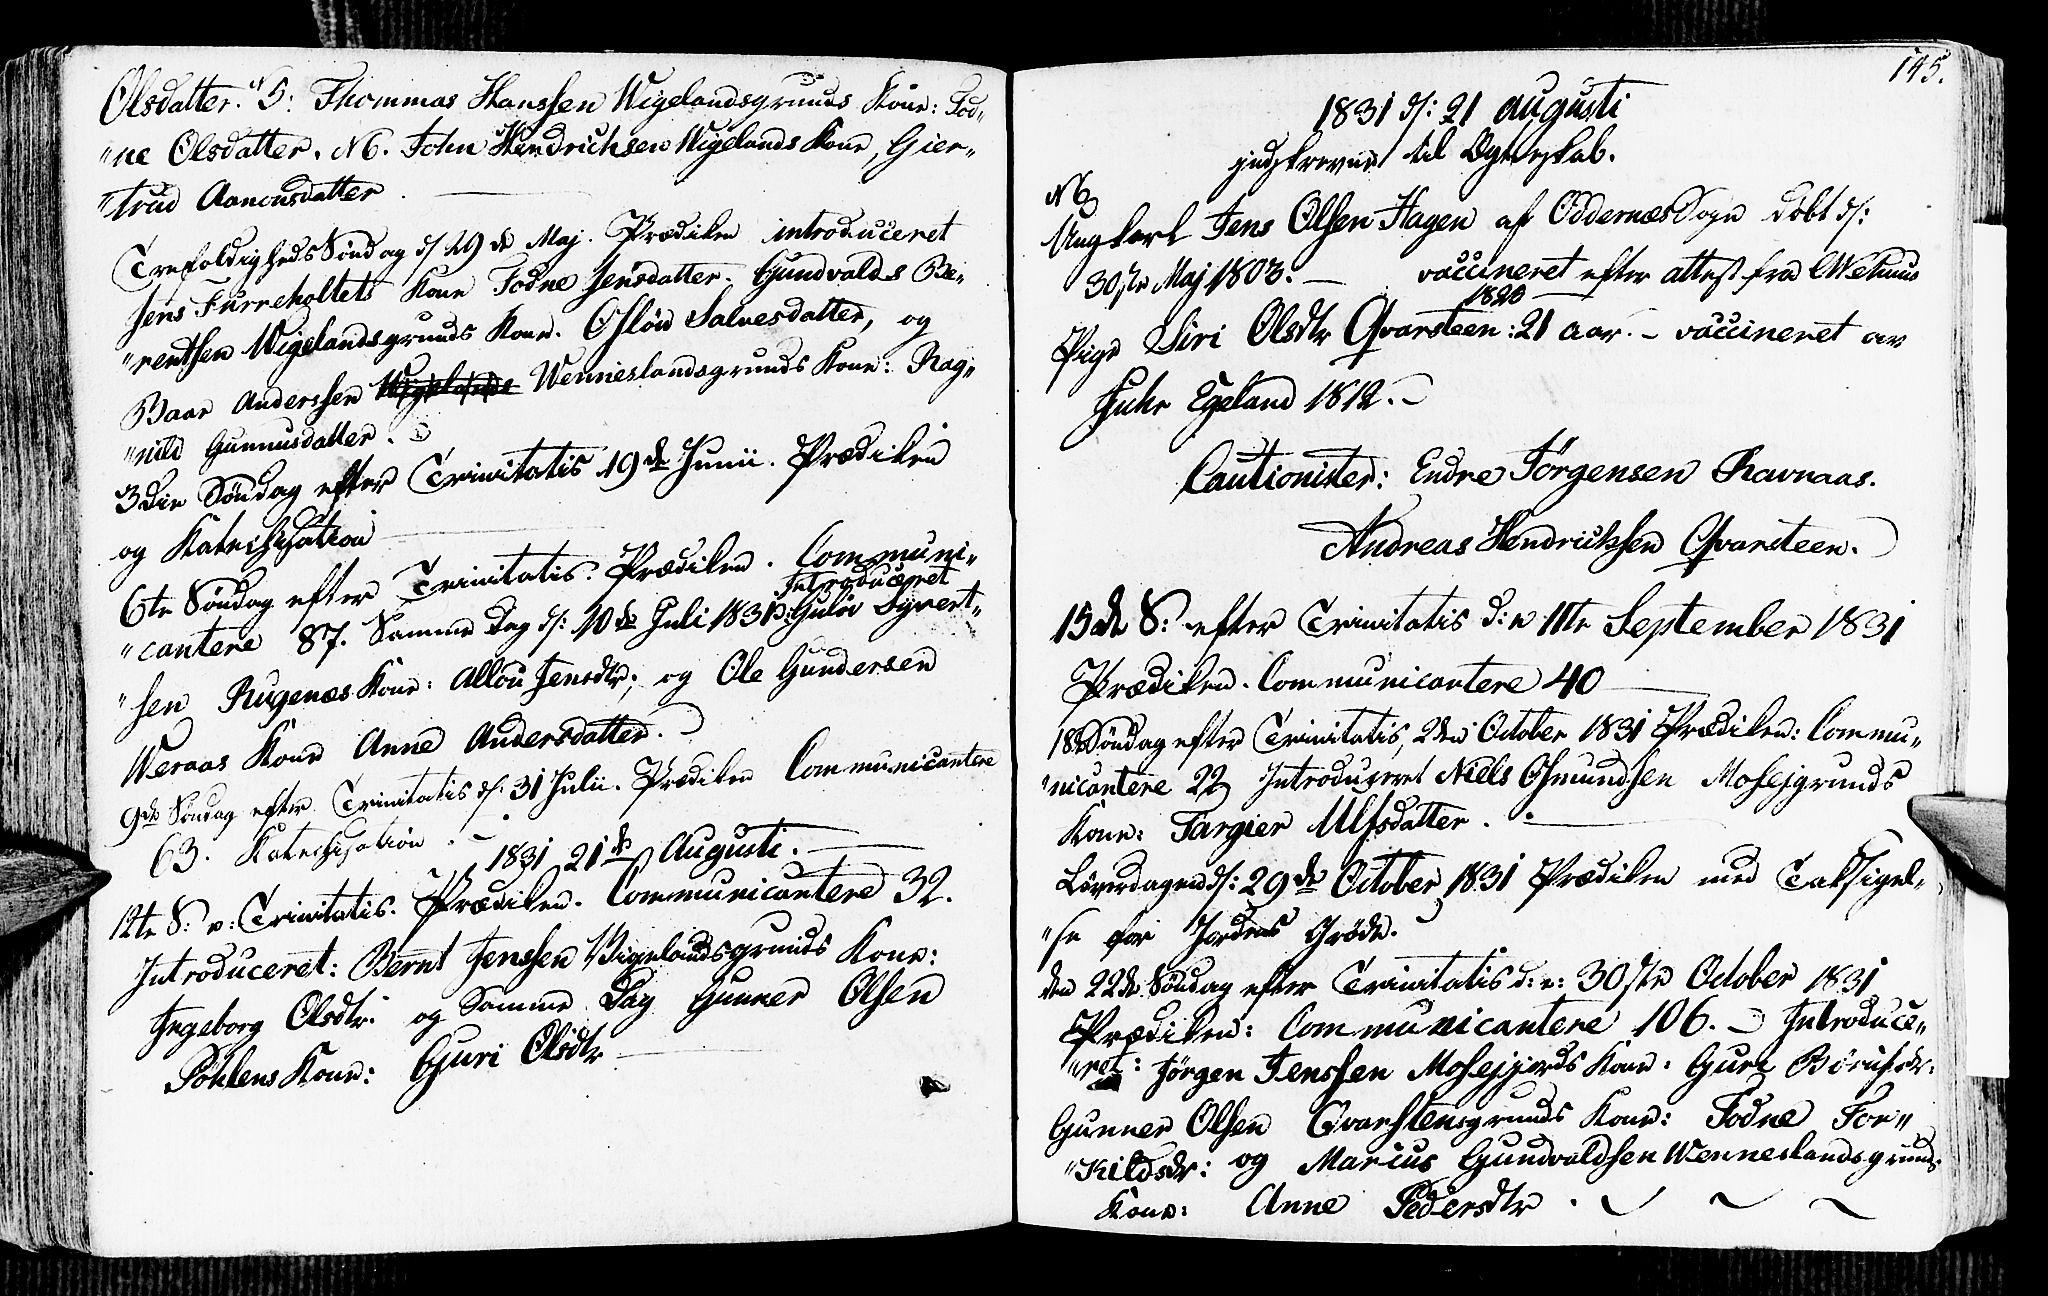 Olsdatter. N 5: Thommas Hanssen Wigelandsgrunds Kone: Tod„
„ne Olsdatter. N6. John Hendrichsen Wigelands Kone, Gier„
„trud Aanonsdatter
Trefoldigheds Søndag d: 29de Maj. Prædiken introduceret
Jens Furreholtets Kone Todne Jensdatter. Gundvalds Be„
„rentsen Wigelandsgrunds Kone. Osløu Salvesdatter, og
Baar Anderssen Wigelands Wenneslandsgrunds Kone: Rag„
„nild Gunnusdatter.
3die Søndag efter Trinitatis 19de Junii. Prædiken
og Katechisation
6te Søndag efter Trinitatis. Prædiken. Communi„
Introduceret
„cantere 87. Samme Dag d: 10de Juli 1831 Guløv Syvert„
„sen Rugenæs Kone: Allou Jensdtr; og Ole Gundersen
Weraas Kone Anne Andersdatter.
9de Søndag efter Trinitatis d: 31 Julii. Prædiken Communicantere
63. Katechisation.
1831 21de Augusti.
12te S: e: Trinitatis. Prædiken. Communicantere 32.
Introduceret: Bernt Jenssen Vigelandsgrunds Kone:
Ingeborg Olsdtr: og Samme Dag Gunner Olsen
Pohlens Kone: Guri Olsdtr
145.
1831 d: 21 Augusti
indskreven til Ægteskab.
N6
Ungkarl Jens Olsen Hagen af Oddernæs Sogn døbt d:
30te Maj 1803. — vaccineret efter attest fra Wetnius
1820
Pige Siri Olsdtr Qvarsteen: 21 aar. – vaccineret av
Suhr Egeland 1812. –
Cautionister: Endre Jörgensen Ravnaas.
Andreas Hendrichsen Qvarsteen.
15de S: efter Trinitatis d: e 11te September 1831
Prædiken. Communicantere 40
18de Søndag efter Trinitatis, 2den October 1831 Prædiken: Commu„
„nicantere 22 Introduceret Niels Osmundsen Mosejgrunds
Kone: Targier Ulfsdatter.
Løverdagen d: 29de October 1831 Prædiken med Taksigel„
„se for Jordens Grøde.
den 22de Søndag efter Trinitatis d: e: 30te October 1831
Prædiken: Communicantere 106. – Introduce„
„ret: Jörgen Jenssen Mosejjords Kone: Guri Börufsdr:
Gunner Olsen Qvarstensgrunds Kone: Todne Tor„
„kildsdr: og Marcus Gundvaldsen Wenneslandsgrunds
Kone: Anne Pedersdtr.